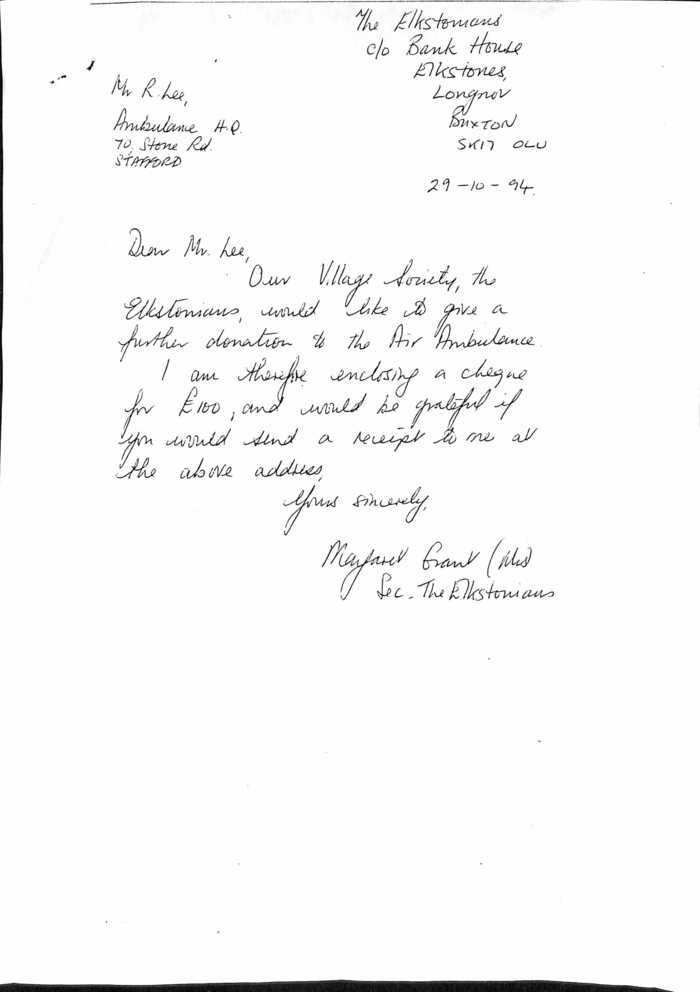 The Elkstonians
c/o Bank House
Elkstones,
Longnor
BUXTON
SK17 OLU
29-10-94.
Mr R. Lee,
Ambulance H.Q.
70, Stone Rd.
STAFFORD
Dear Mr. Lee,
Our Village Society, the
Elkstonians, would like to give a
further donation to the Air Ambulance.
I am therefore enclosing a cheque
for £100, and would be grateful if
you would send a receipt to me at
the above address,
Yours sincerely,
Margaret Grant (Mrs)
Sec. The Elkstonians